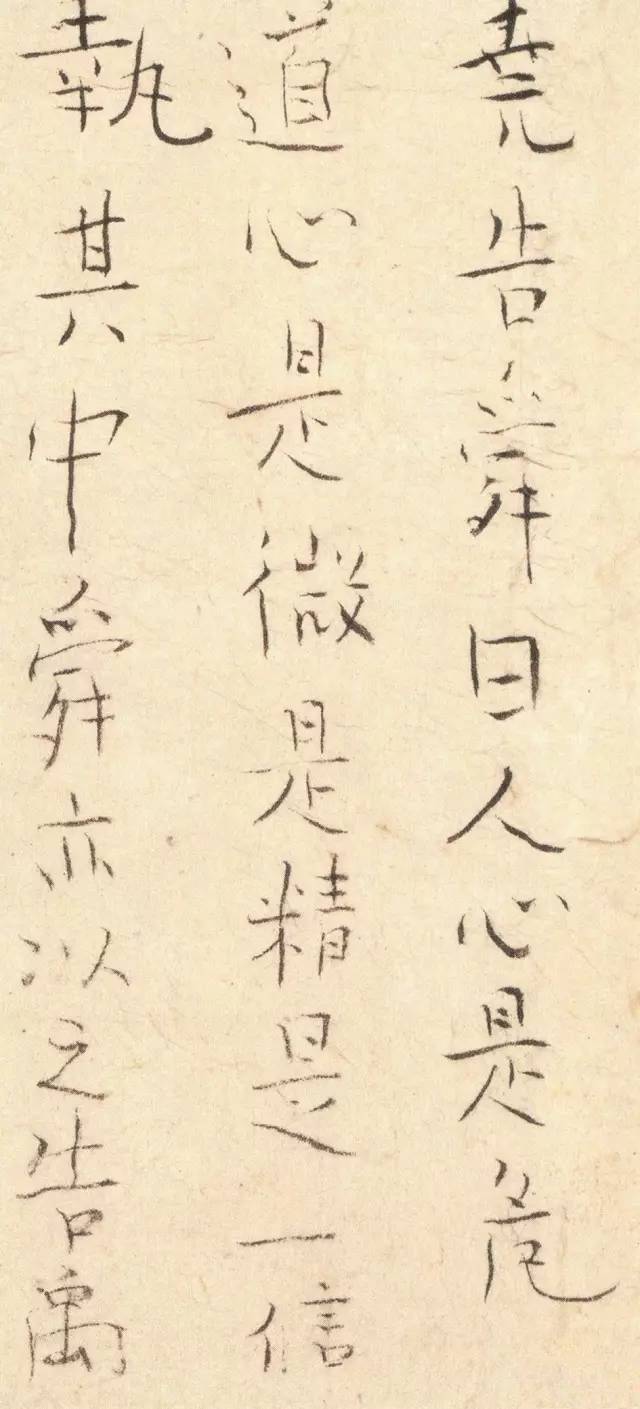 堯告舜曰人心是危
道心是微是精是一信
執其中舜亦以之告禹